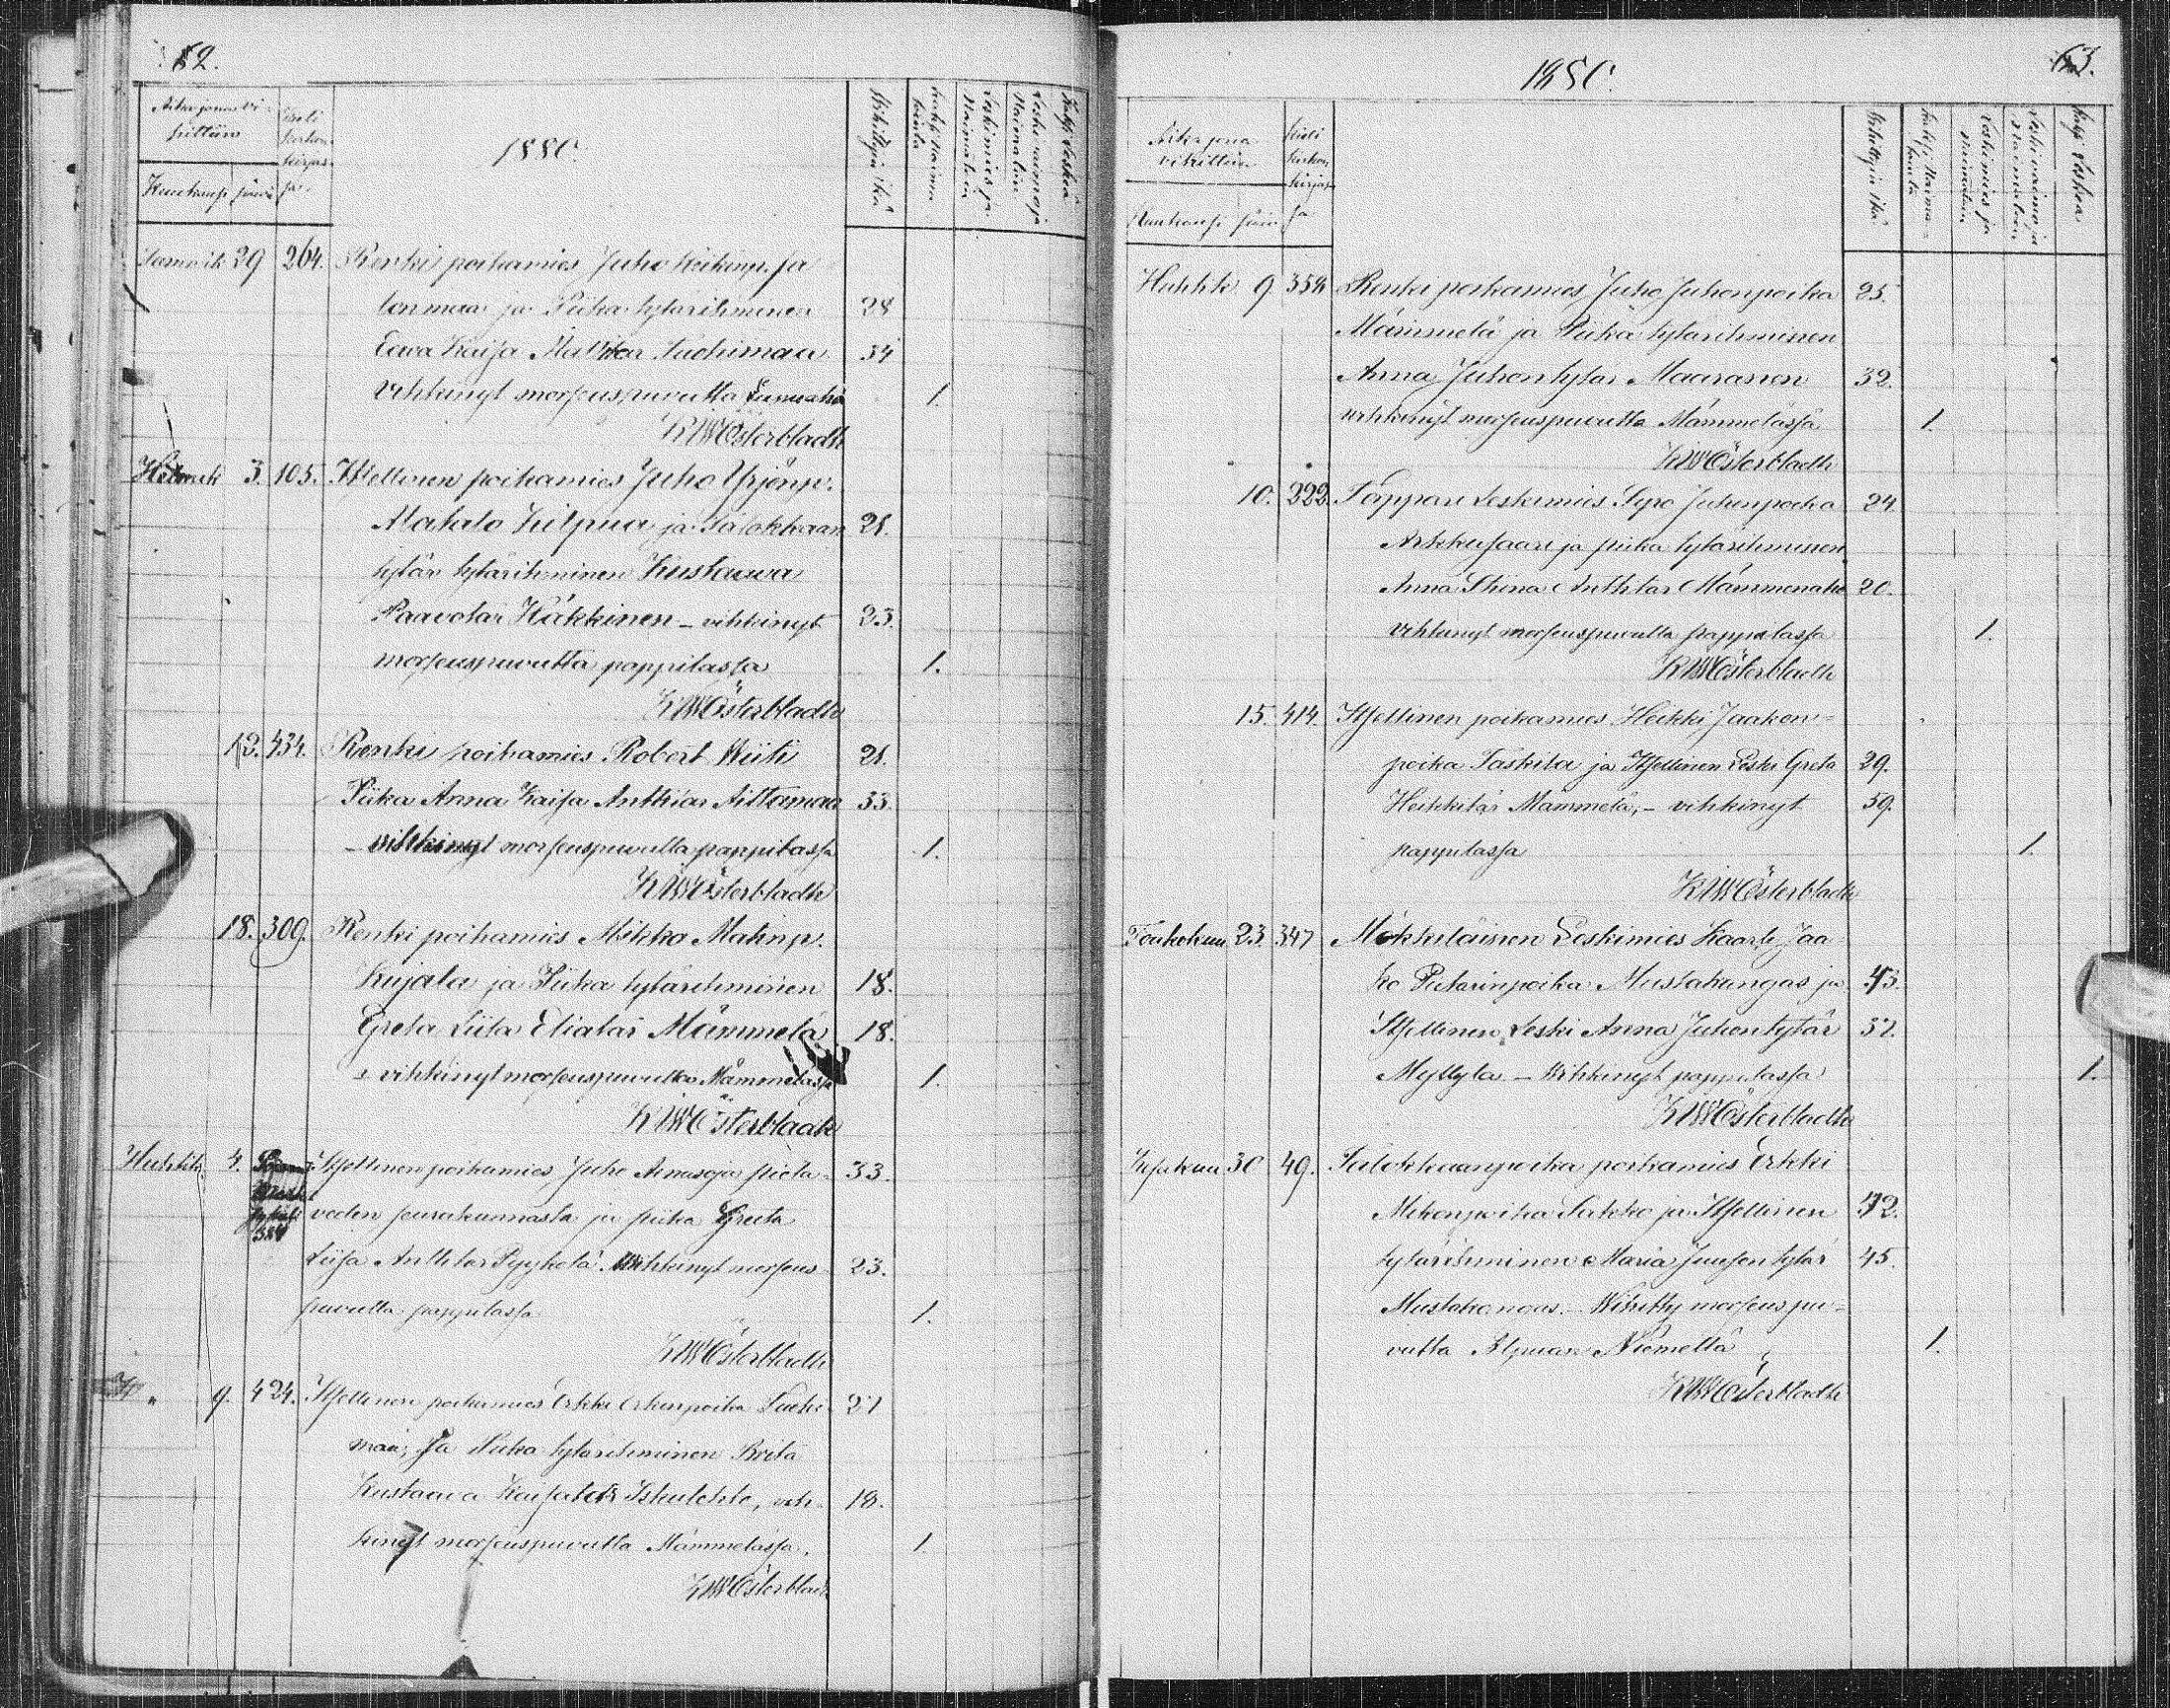 62.
Aika jona vi-
hittiin
Kuukausi päivä
1880.
Vihittyin ikä
Tammik 29 264. Renki poikamies Juho Heikinp. Ja
lonmaa ja Piika tytärihminen 28
Eeva Kaisa Matitar Suohimaa 34
vihkinyt morsiuspuvutta 1.
KWÖsterbladh
Helmik 3. 105. Itsellinen poikamies Juho Yrjönp.
Matalo Kilpua ja Talokkaan 21.
tytär tytärihminen Kustaava
Paavotar Häkkinen - vihkinyt 23.
morsiuspuvutta pappilassa 1.
KWÖsterbladh
13. 434. Renki poikamies Robert Wiiti 21.
Piika Anna Kaisa Anttitar Aittomaa 33.
- vihkinyt morsiuspuvutta pappilassa 1.
KWÖsterbladh
18. 309. Renki poikamies Mikko Matinp.
Kujala ja Piika tytärihminen 18.
Greta Liisa Eliatar Mämmelä 18.
- vihkinyt morsiuspuvutta Mämmelässä 1.
KWÖsterbladh
Huhtik. 4. Itsellinen poikamies Juho Ainasoja Pieta- 33.
324 veden seurakunnasta ja piika Greta
Liisa Anttitar Pyykölä. Wihkinyt morsius- 23.
puvutta pappilassa 1.
KWÖsterbladh
" 9. 424. Itsellinen poikamies Erkki Erkinpoika Suohi- 27
maa; Ja Piika tytärihminen Brita
Kustaava Kaisatar Iskulehto, vih- 18.
kinyt morsiuspuvutta Mämmelässä. 1.
KWÖsterbladh
63.
1880.
Aika jona
vihittiin
Kuukausi päivä
Vihittyin ikä
Huhtik 9. 358 Renki poikamies Juho Juhonpoika 25.
Mämmelä ja Piika tytärihminen
Anna Juhontytar Maaranen 32.
vihkinyt morsiuspuvutta Mämmelässä 1.
KWÖsterbladh
10. 222. Torppari Leskimies Sipo Juhonpoika 24
Arkkusaari ja piika tytärihminen
Anna Stiina Anthtar Mämmenaho 20.
Vihkinyt morsiuspuvutta pappilassa 1.
KWÖsterbladh
15. 414. Itsellinen poikamies Heikki Jaakon-
poika Taskila ja Itsellinen Leski Greta 29.
Heikkitär Mämmelä, - vihkinyt 59.
pappilassa 1.
KWÖsterbladh
Toukokuu 23. 347 Mökkiläinen Leskimies Kaarle Jaa-
ko Pietarinpoika Mustakangas ja 43.
Itsellinen, Leski Anna Juhontytär 37.
Myllylä - Wihkinyt pappilassa 1.
KWÖsterbladh
Kesäkuu 30 49. Talokkaanpoika poikamies Erkki
Mikonpoika Sakko ja Itsellinen 42.
tytärihminen Maria Juusontytär 45.
Mustakangas. - Wihitty morsiuspu-
vutta Alpuan Niemellä 1.
KWÖsterbladh